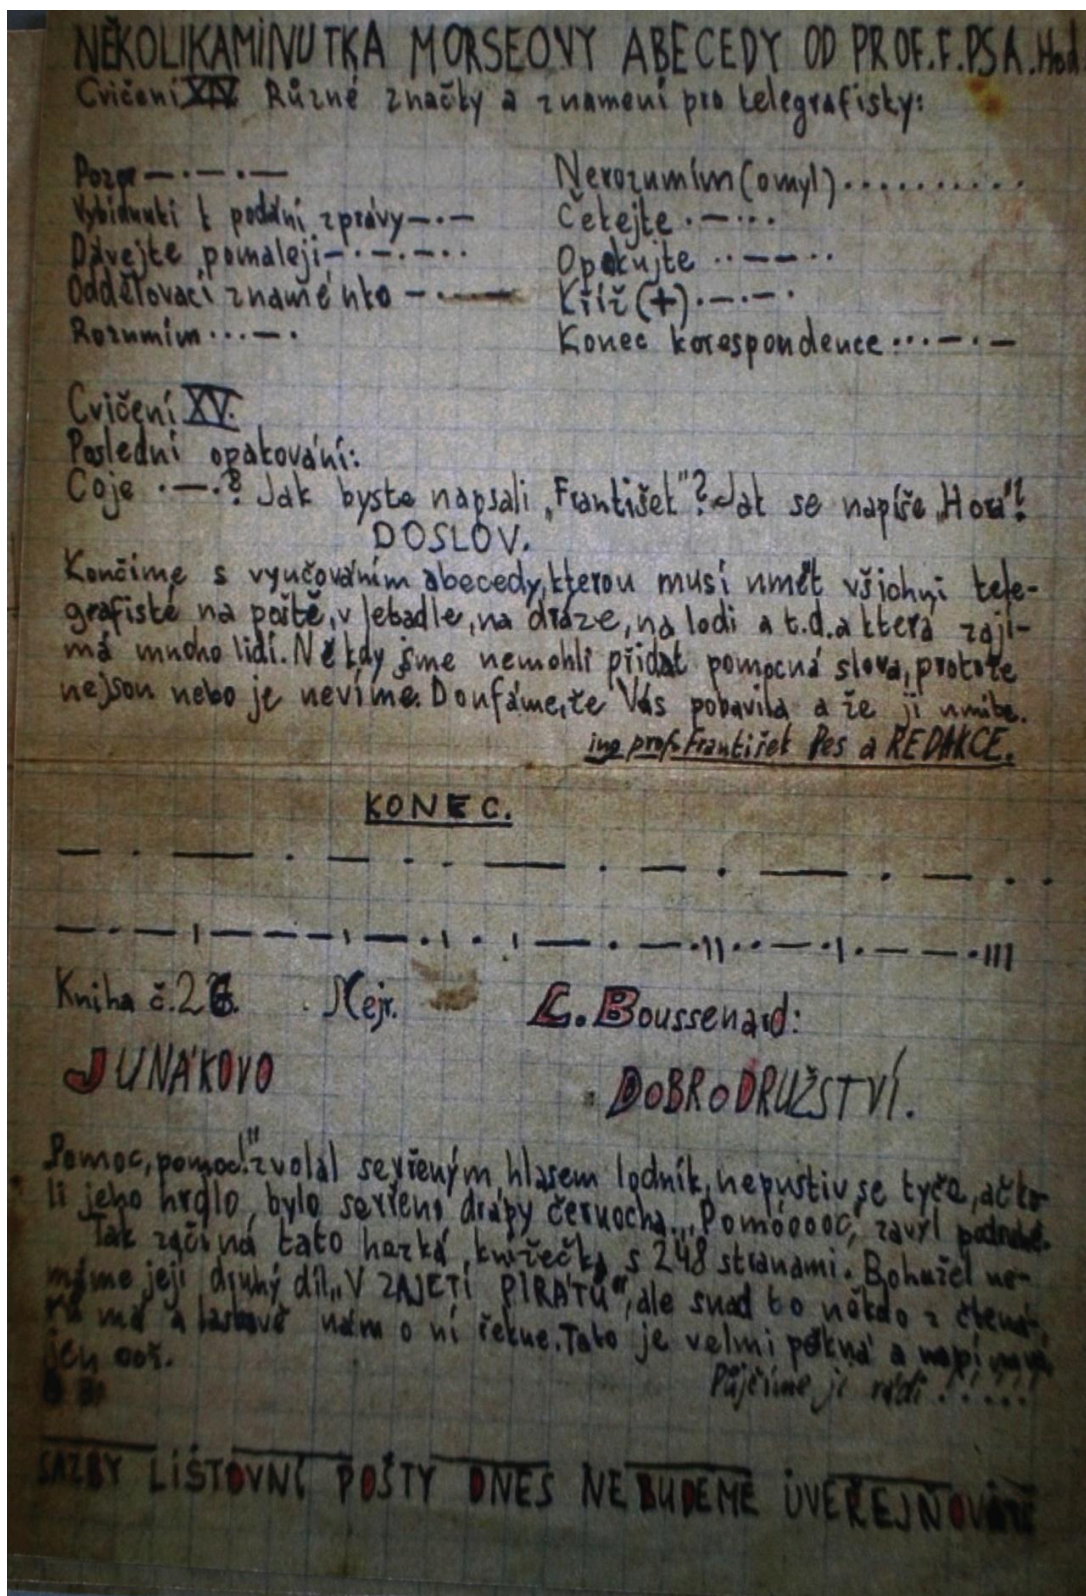 NĚKOLIKAMINUTKA MORSEOVY ABECEDY OD PROF.F.PSA.Hod.
Cvičení XIV. Různé značky a znamení pro telegrafisty:
Pozor —·—·—
Vybídnutí k podání zprávy —·—
Dávejte pomaleji —·—·—··
Oddělovací znaménko —·——
Rozumím ···—·
Nerozumím(omyl)··········
Čekejte ·—···
Opakujte ··——··
Kříž(+)·—·—·
Konec korespondence ···—·—
Cvičení XV.
Poslední opakování:
Co je ·—·? Jak byste napsali „František"? Jak se napíše „Hora"?
DOSLOV.
Končíme s vyučováním abecedy, kterou musí umět všichni tele-
grafisté na poště, v letadle, na dráze, na lodi a t.d. a která zají-
má mnoho lidí. Někdy jsme nemohli přidat pomocná slova, protože
nejsou nebo je nevíme. Doufáme, že Vás pobavila a že ji umíte.
ing prof. František Pes a REDAKCE.
KONEC.
— · — · — · · — · — · — · — · ·
—·—|———|—·|·|—·—·||··—·|·——·|||
Kniha č.26. Nejr. L. Boussenard:
JUNÁKOVO DOBRODRUŽSTVÍ.
Pomoc, pomoc!" zvolal sevřeným hlasem lodník, nepustiv se tyče, ačko-
li jeho hrdlo bylo sevřeno drápy černocha. „Pomóoooc, zavyl podruhé.
Tak začíná tato hezká knížečka s 248 stranami. Bohužel ne-
máme její druhý díl „V ZAJETÍ PIRÁTŮ", ale snad to někdo z čtená-
řů má a laskavě nám o ní řekne. Tato je velmi pěkná a
Půjčíme ji rádi!.....
SAZBY LISTOVNÍ POŠTY DNES NEBUDEME UVEŘEJŇOVATI